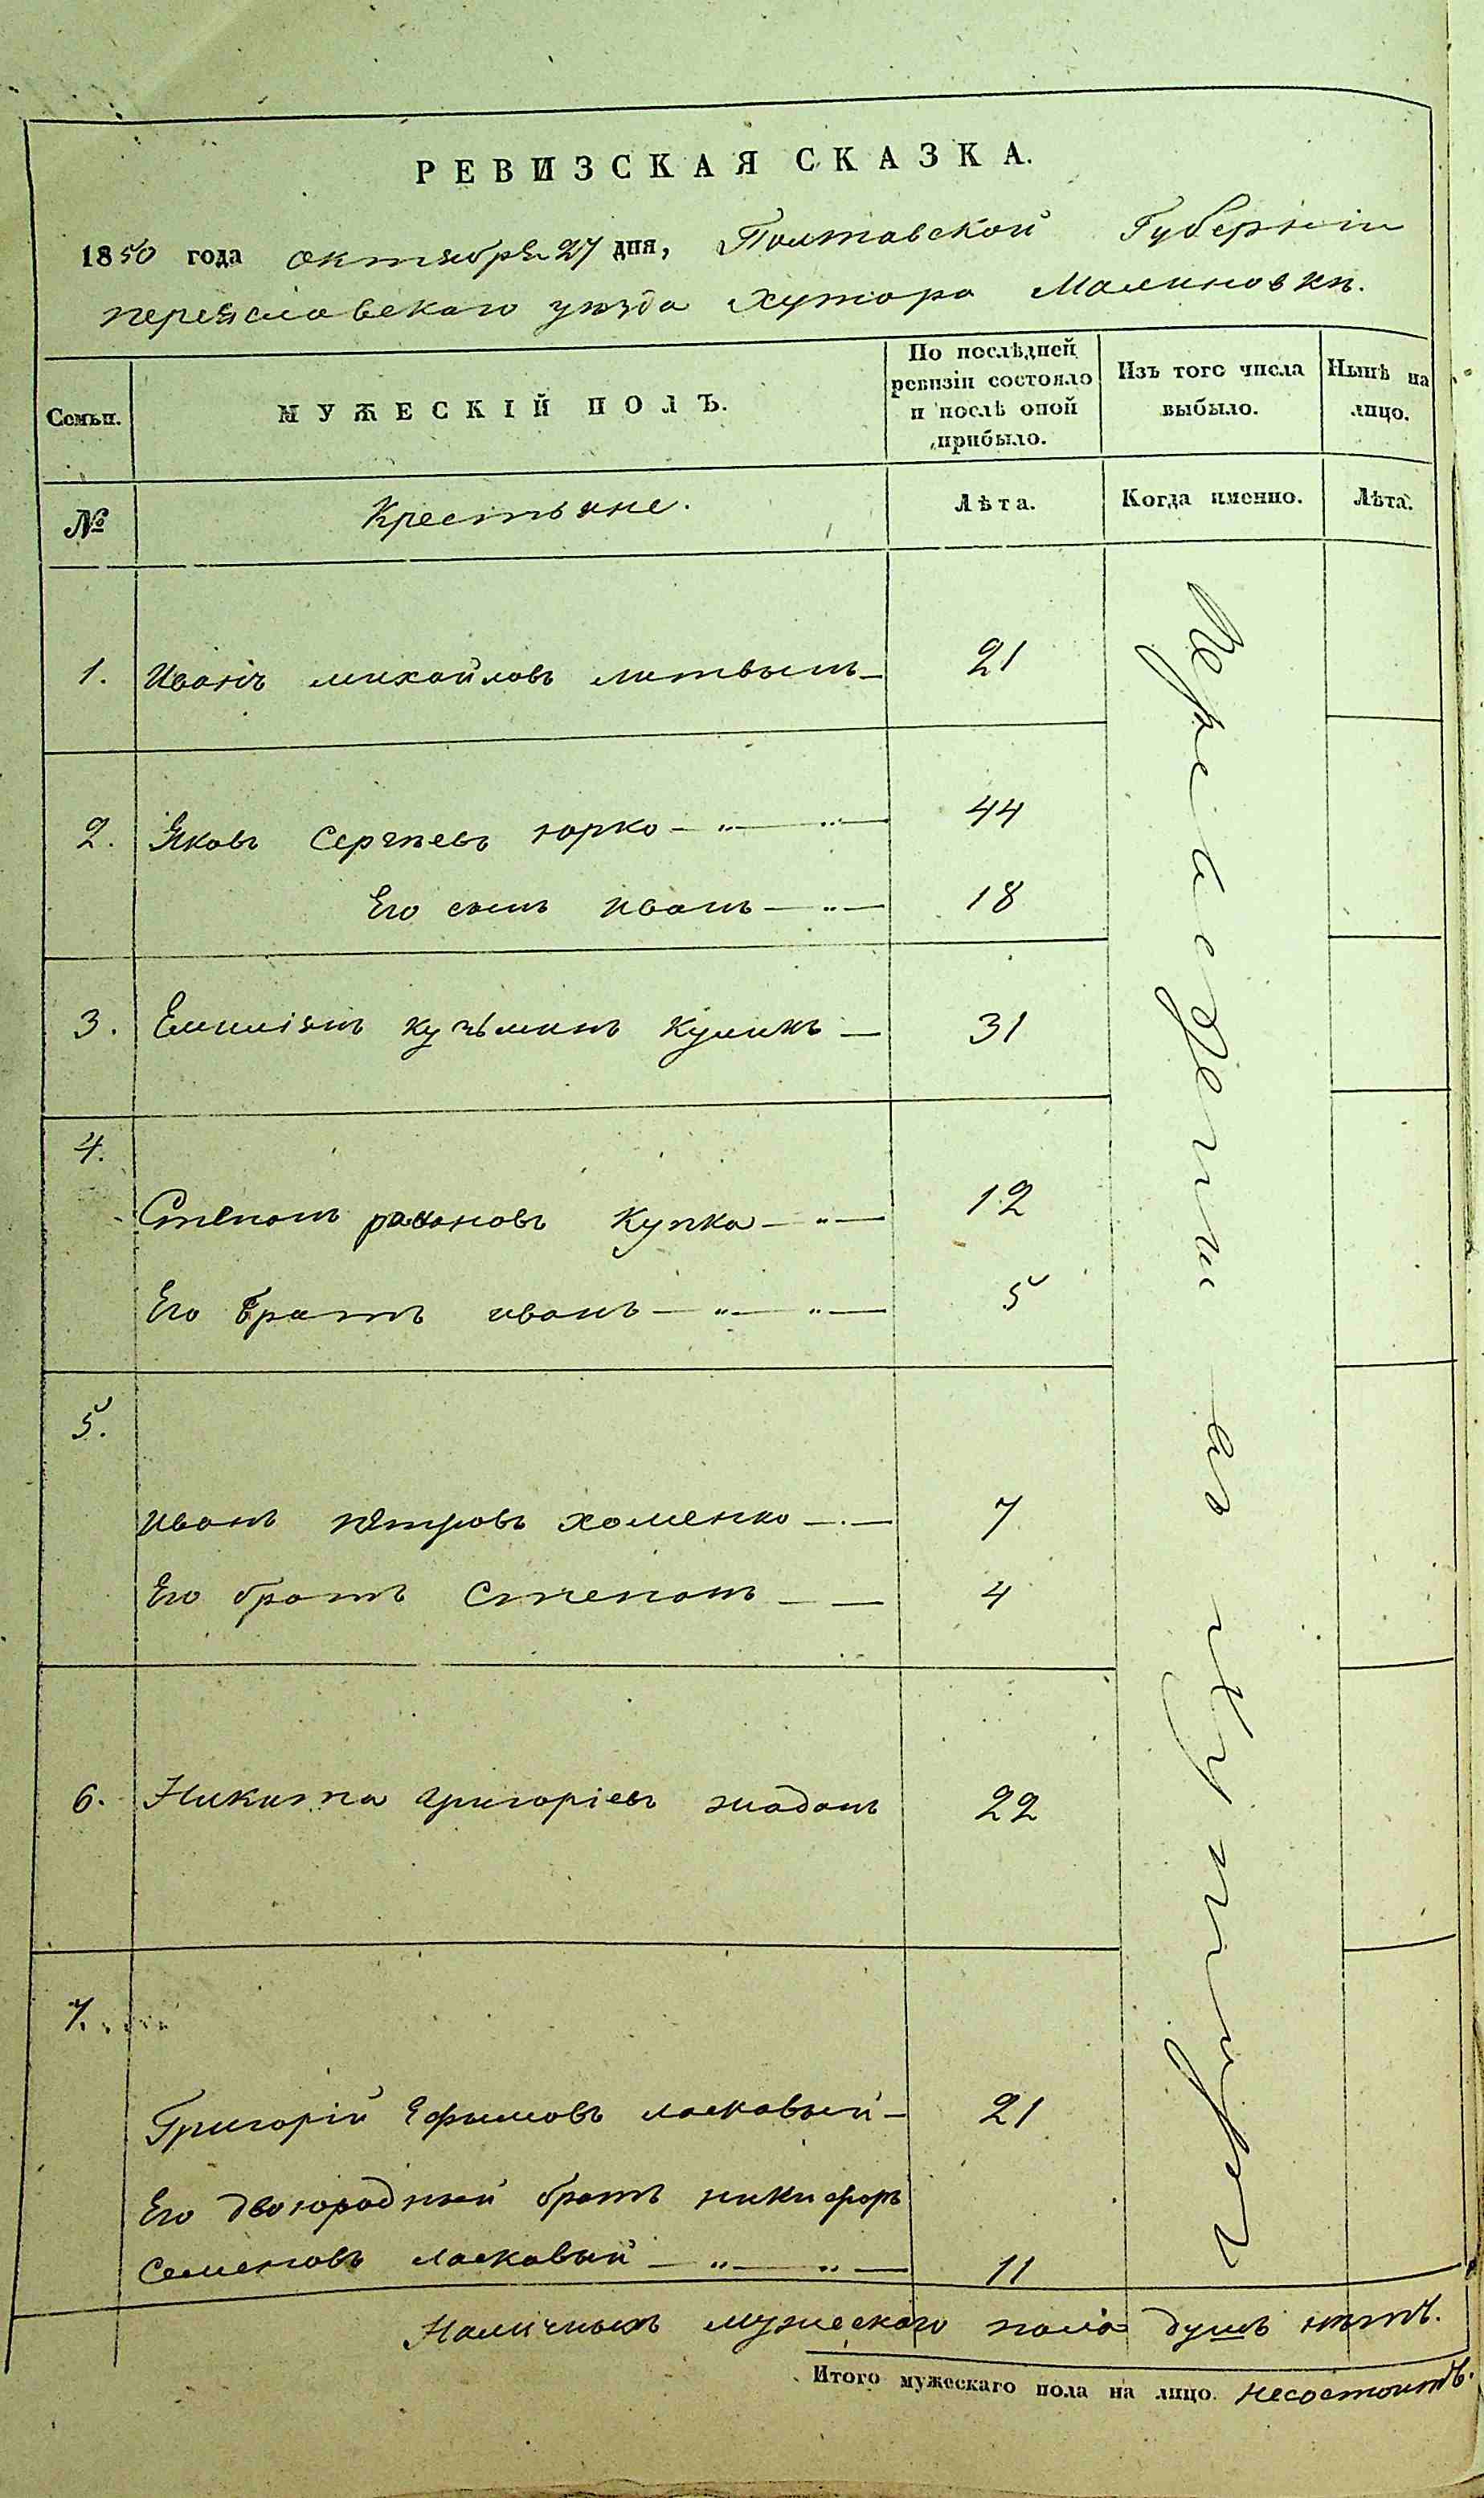 РЕВИЗСКАЯ СКАЗКА.
1850 года октября 27 дня, Полтавской Губерніи
переяславскаго уѣзда хутора Малиновки.
Семьи.
МУЖЕСКІЙ ПОЛЪ.
По послѣдней
ревизіи состояло
и послѣ оной
прибыло.
Изъ того числа
выбыло.
Нынѣ на
лицо.
№
Крестьяне.
Лѣта.
Когда именно.
Лѣта.
1. Иванъ михайловъ литвынъ — 21
2. Яковъ Сергѣевъ юрко — „ — „ — 44
Его сынъ иванъ — „ — 18
3. Емилiянъ кузьминъ куликъ — 31
4.
Степанъ купка — „ — 12
Его братъ иванъ — „ — „ — 5
5.
иванъ петровъ хоменко — . — 7
Его братъ Степанъ — — 4
6. Никита григорiевъ жаданъ 22
7.
Григорій Ефимовъ ласкавый — 21
Его двоюродный братъ никифоръ
Семеновъ ласкавый — „ — „ — 11
Переведены въ
Наличныхъ мужескаго пола душъ нѣтъ.
Итого мужескаго пола на лицо. несостоитъ.